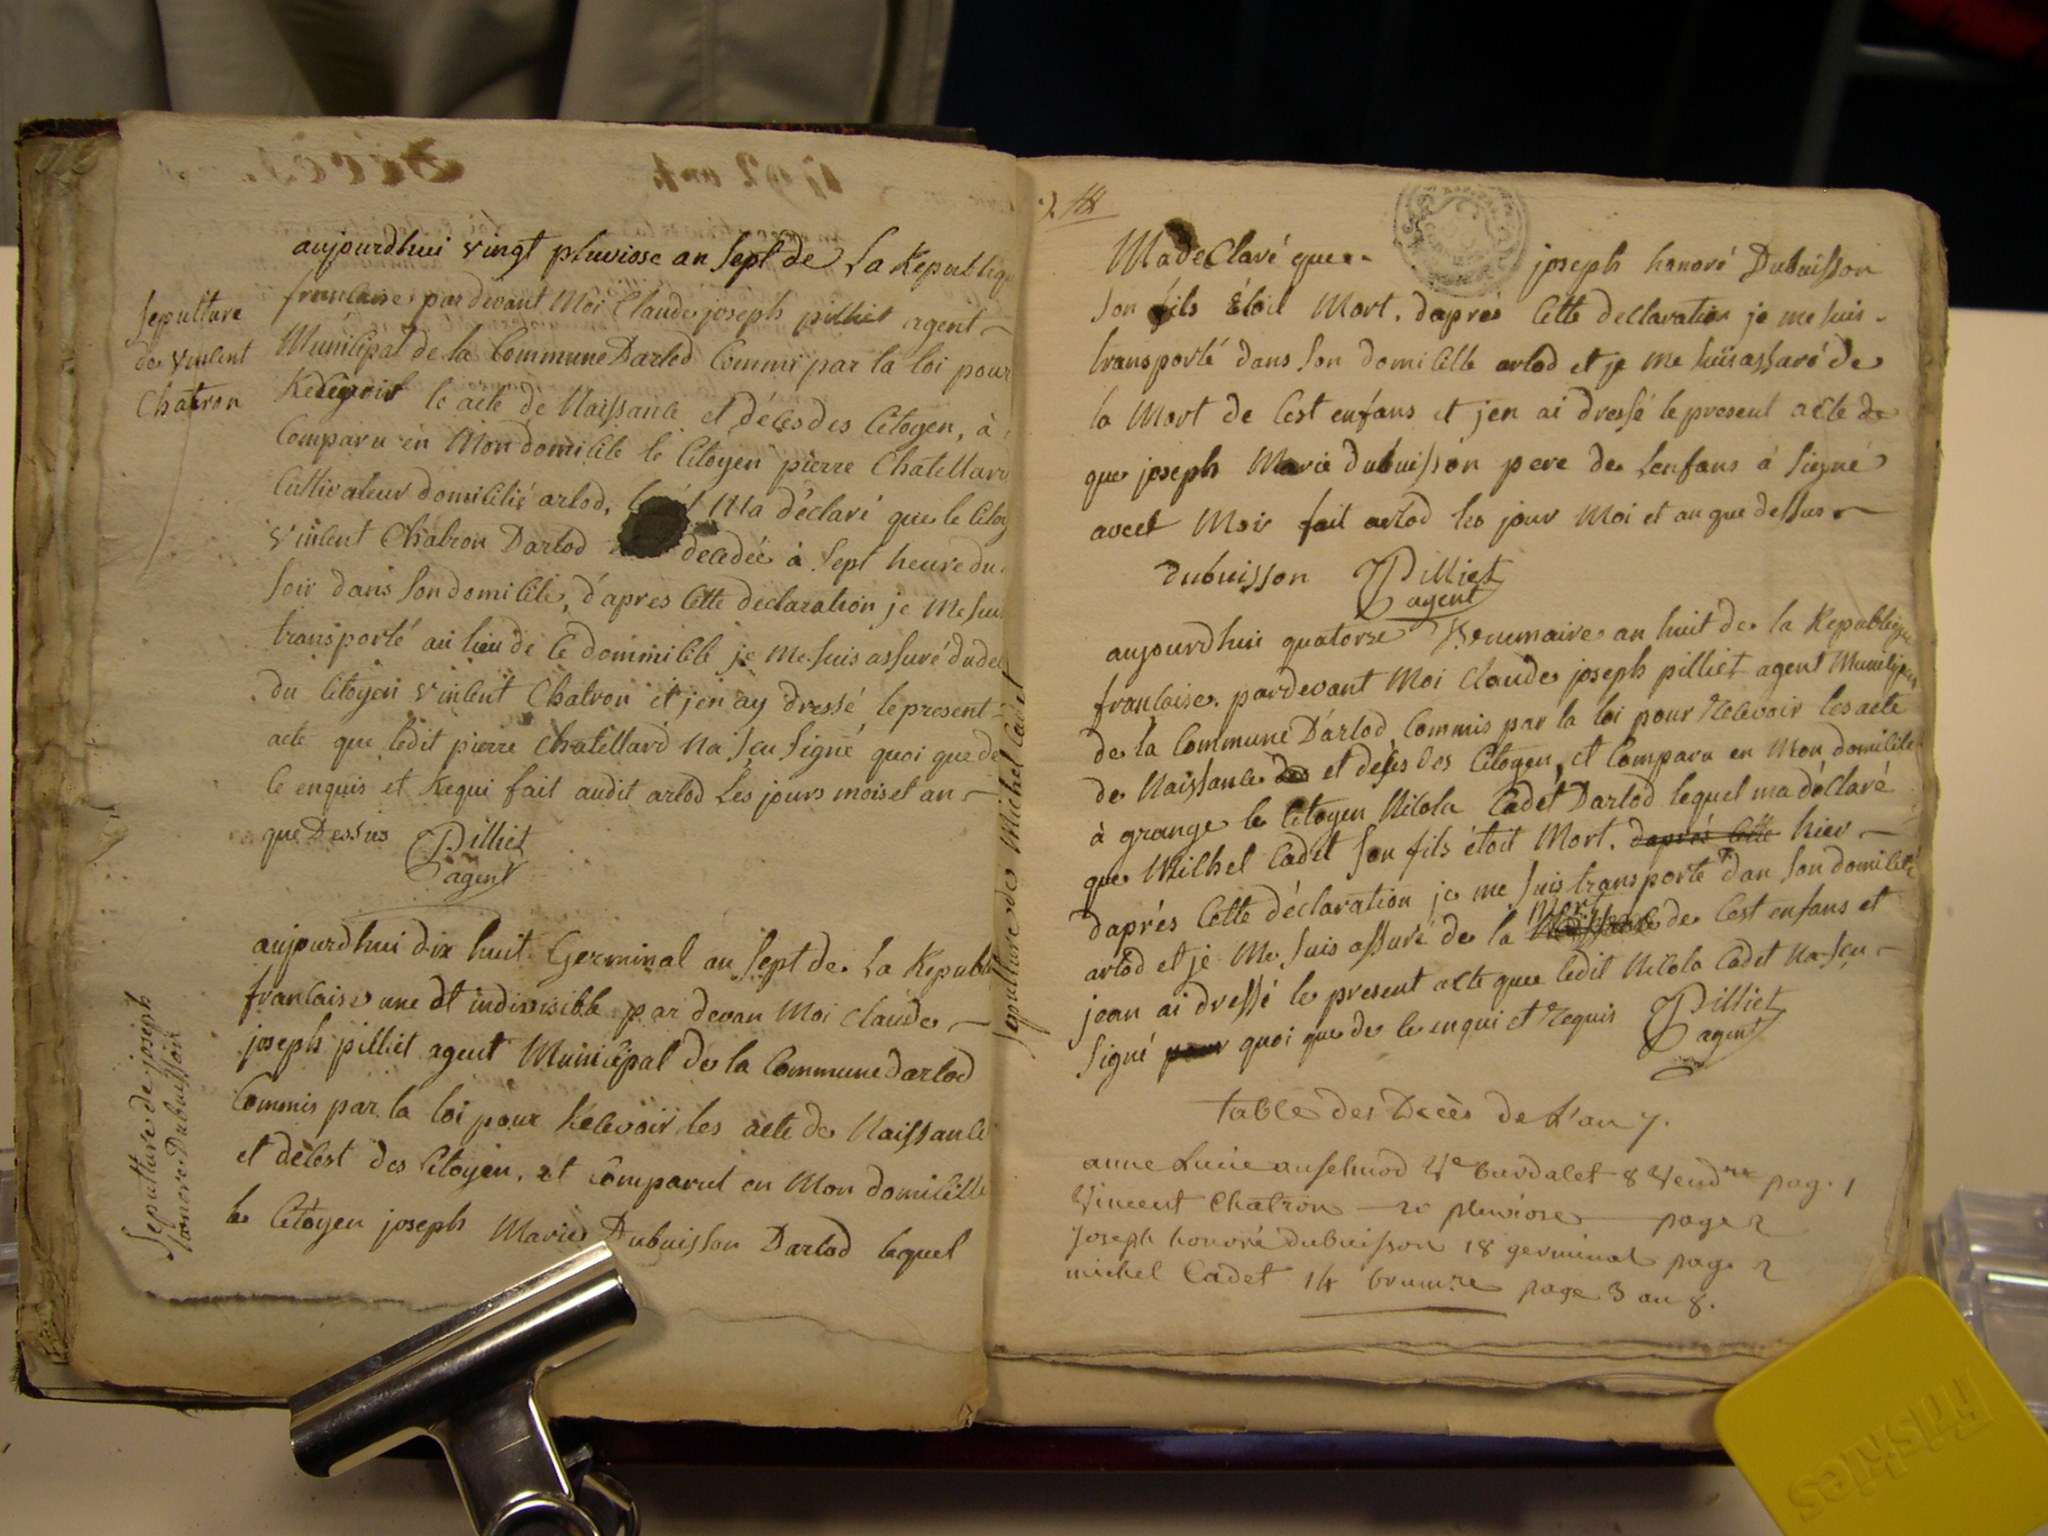 Sepulture
de vincent
Chatron
aujourdhui vingt pluviose an sept de La Republique
francaise par devant Moi Claude joseph pilliet agent
Municipal de la Commune Darlod Commi par la loi pour
Recevoir le acte de Naissance et déces des Citoyen, à
Comparu en Mon domicile le Citoyen pierre Chatellard
Cultivateur domicilié arlod, ma déclaré que le Citoy
vincent Chatron Darlod decedée à sept heure du
soir dans son domicile, d'apres Cette declaration je Me suis
transporté au lieu de Ce dommicile je Me suis assuré du de
du Citoyen vincent Chatron et j'en ay dressé le present
acte que ledit pierre Chatellard Na sçu signé quoi que de
Ce enquis et Requi fait audit arlod Les jours mois et an
que Dessus Pilliet
agent
Sepulture de joseph
honoré Dubuisson
aujourdhui dix huit Germinal an sept de La Republ
francaise une et indivisible par devan Moi claude
joseph pilliet agent Municipal de la Commune darlod
Commis par la loi pour Recevoir les acte de Naissance
et décest des Citoyen, et Comparut en Mon domicille
le Citoyen joseph Marie Dubuisson Darlod lequel
Sepulture de Michel Cadet
Ma déClaré que joseph honoré Dubuisson
son fils Étoit Mort. daprés Cette declaration je me suis
transporté dans son domicille arlod et je me suis assuré de
la Mort de Cest enfans et jen ai dressé le present acte de
que joseph Marie dubuisson pere de Lenfans à signé
avect Moi fait arlod les jour Moi et an que dessus
dubuisson Pilliet
agent
aujourdhui quatorze Brumaire an huit de la Republique
francaise. pardevant Moi Claude joseph pilliet agent Municipal
de la Commune D'arlod, Commis par la loi pour Recevoir les acte
de Naissance des et déses des Citoyen, et Comparu en Mon domicile
à grange le Citoyen Nicola Cadet Darlod lequel ma déclaré
que Michel Cadet son fils étoit Mort. daprés Cette hier
daprés Cette déclaration je me suis transporté dan son domicile
arlod et je Me suis assuré de la Naissance Mort de Cest enfans et
jean ai dressé le present acte quee ledit Nicola Cadet Na sçu
signé pour quoi que de Ce enqui et Requis Pilliet
agent
table des Decès de L'an 7.
anne Lucie anselmod Ve burdalet 8 Vendre pag. 1
Vincent Chatron 20 pluviose page 2
Joseph honoré dubuisson 18 germinal pag. 2
michel Cadet 14 brumre page 3 an 8.
Friskies